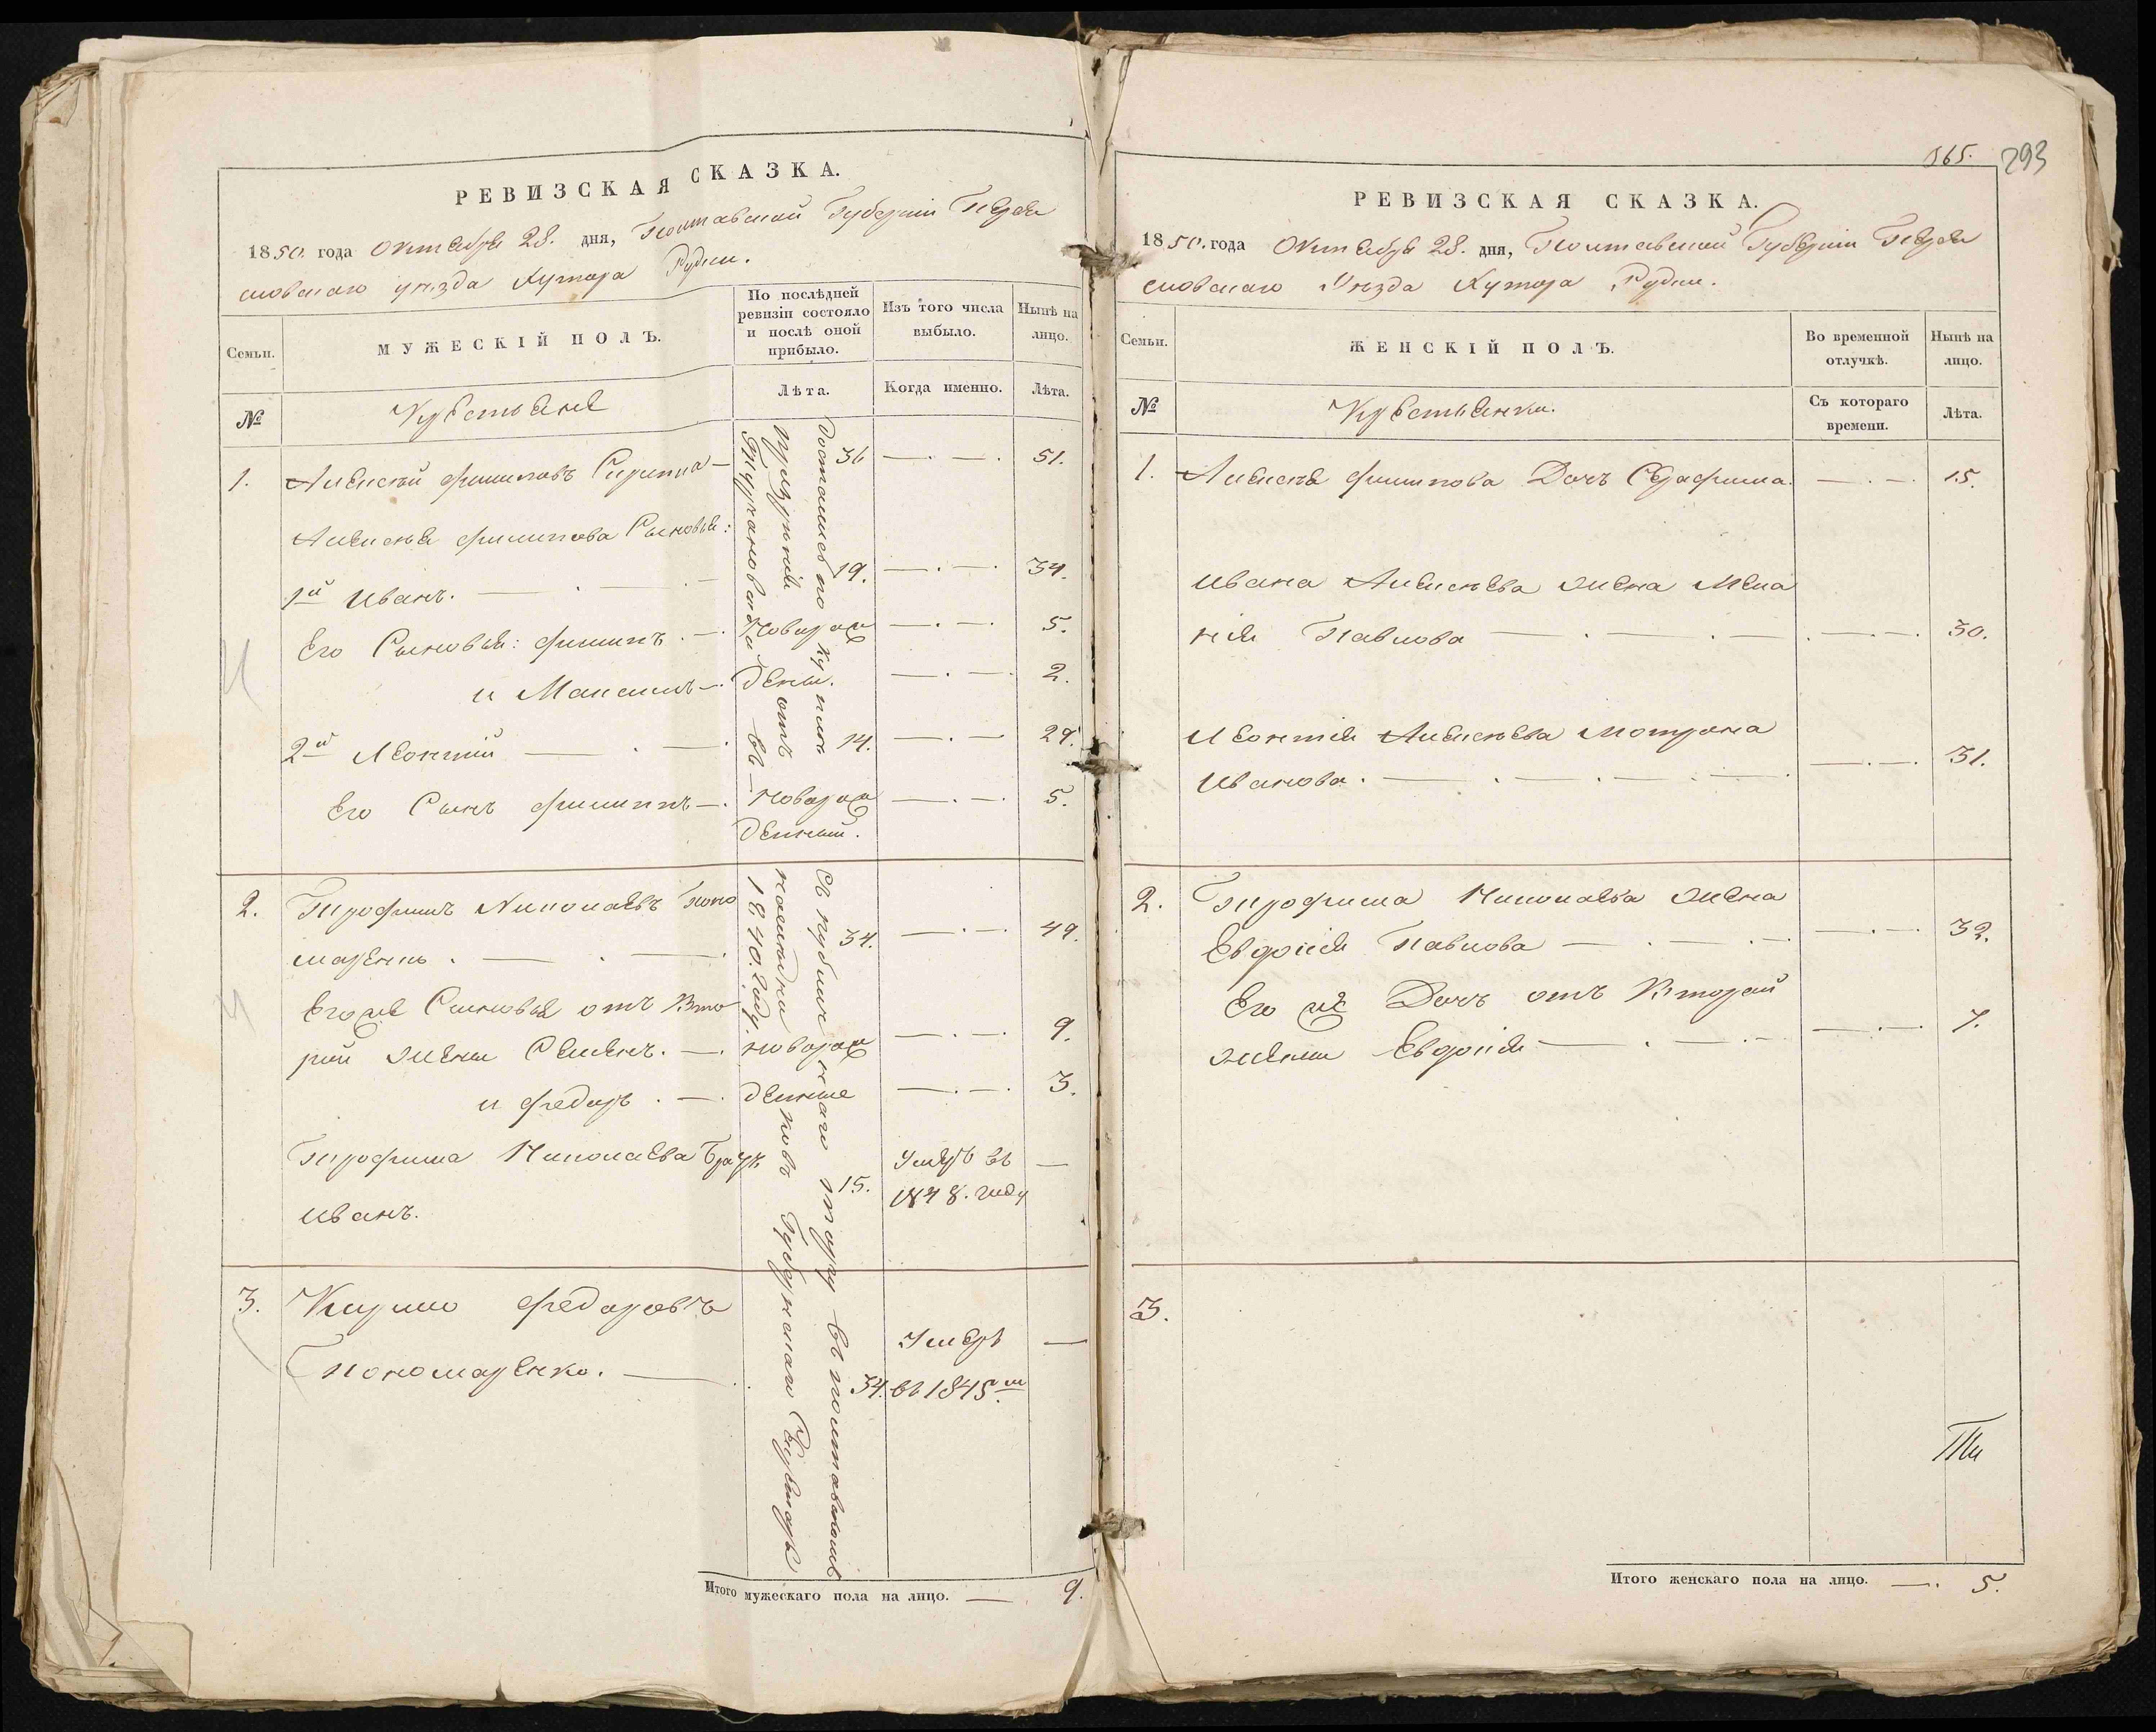 РЕВИЗСКАЯ СКАЗКА.
1850. года Октября 28. дня, Полтавской Губерніи Переяс
ловскаго уѣзда Хутора Рудки.
Семьи.
МУЖЕСКІЙ ПОЛЪ.
По послѣдней
ревизіи состояло
и послѣ оной
прибыло.
Изъ того числа
выбыло.
Нынѣ на
лицо.
№
Крестьяне
Лѣта.
Когда именно.
Лѣта.
1. Алексѣй Филиповъ 36 —.—. 51.
Алексѣя Филипова Сыновья:
1й Иванъ. — . — 19. —.—. 34.
Его Сыновья: Филипъ.—. Новорож —.—. 5.
и Максимъ—. дены. —.—. 2.
2й Леонтій — . —. 14. —.— 29.
Его Сынъ Филиппъ—. Новорож —.—. 5.
денный.
Доставшіеся по купли
отъ
въ
2. Трофимъ Николаевъ Поно
маренко . — . —. 34. —.—. 49.
Егоже Сыновья отъ Вто
рой жены Семенъ.—. новорож —.—. 9.
и Федоръ .—. денные —.—. 3.
Трофима Николаева Братъ Умеръ въ —
Иванъ. 15. 1848. году
съ публичнаго торгу въ Полтавскомъ
1840. году.
3. Кирило Федоровъ Умеръ —
Пономаренко. —. 34. въ 1845м.
Итого мужескаго пола на лицо. — 9.
565. 293
РЕВИЗСКАЯ СКАЗКА.
1850. года Октября 28. дня, Полтавской Губерніи Перея
словскаго Уѣзда Хутора Рудки.
Семьи.
ЖЕНСКІЙ ПОЛЪ.
Во временной
отлучкѣ.
Нынѣ на
лицо.
№
Крестьянки.
Съ котораго
времени.
Лѣта.
1. Алексѣя Филипова Дочь Серафима. —.—. 15.
Ивана Алексѣева жена Мела
нія Павлова — . — . — . —.—. 30.
Леонтія Алексѣева Мотрона
Иванова. — . — . — . — . —.—. 31.
2. Трофима Николаева жена
Евдокія Павлова — . — . — —.—. 32.
Его же Дочь отъ Второй
жены Евдокія — . — . — —.—. 7.
3.
Итого женскаго пола на лицо. —. 5.